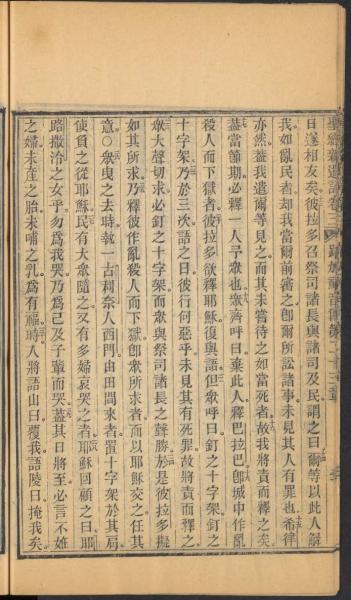 聖經新遺詔卷三 路加福音傳第二十三章
日遂相友矣彼拉多召祭司諸長與諸司及民謂之曰爾等以此人解
我如亂民者却我當爾前審之卽爾所訟諸事未見其人有罪也希律
亦然蓋我遣爾等見之而其未嘗待之如當死者故我將責而釋之矣
蓋當節期必釋一人予眾也眾齊呼曰棄此人釋巴拉巴卽城中作亂
殺人而下獄者彼拉多欲釋耶穌復與語但眾呼曰釘之十字架釘之
十字架乃於三次語之曰彼行何惡乎未見其有死罪故將責而釋之
眾大聲切求必釘之十字架而眾與祭司諸長之聲勝於是彼拉多擬
如其所求乃釋彼作亂殺人而下獄卽眾所求者而以耶穌交之任其
意○眾曳之去時執一古利奈人西門由田間來者置十字架於其肩
使負之從耶穌民有大眾隨之又有多婦哀哭之者耶穌回顧之曰耶
路撒冷之女乎勿為我哭乃為己及子輩而哭蓋其日將至必言不姙
之婦未產之胎未哺之乳為有福時人將語山曰覆我語陵曰掩我矣